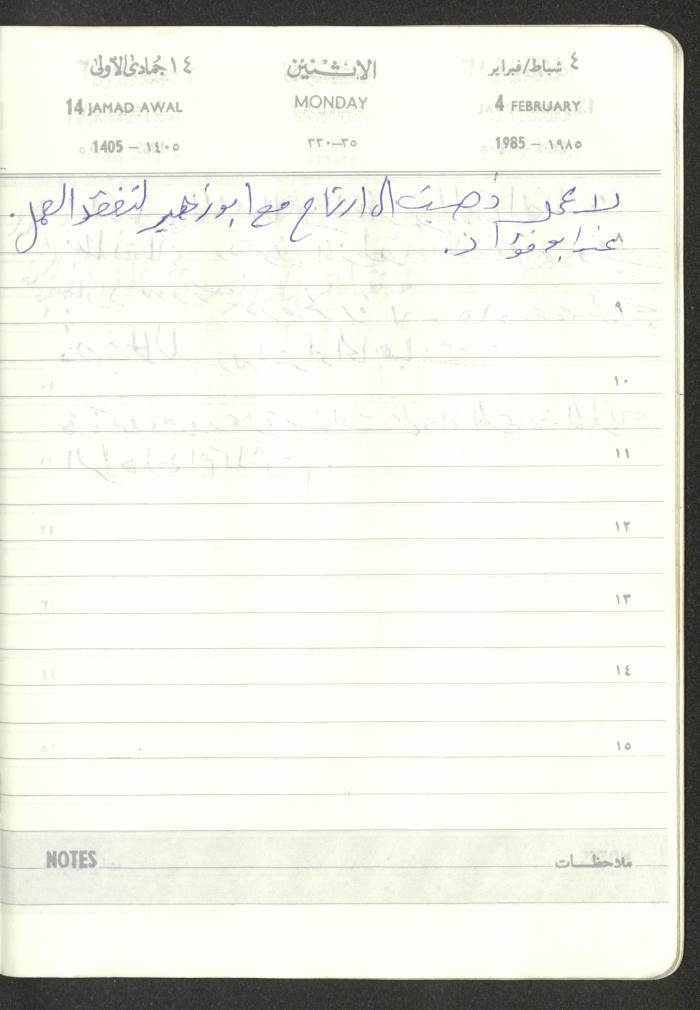 ١٤ جمادى الأولى الاثنين ٤ شباط/فبراير
14 JAMAD AWAL MONDAY 4 FEBRUARY
1405 - ١٤٠٥ ٣٥-٣٣٠ 1985 - ١٩٨٥
لا عمل ذهبت الى ارتاح مع ابو زهير لتفقد العمل.
٨ عند ابو فؤاد.
٩
١٠
١١
١٢
١٣
١٤
١٥
NOTES ملاحظات